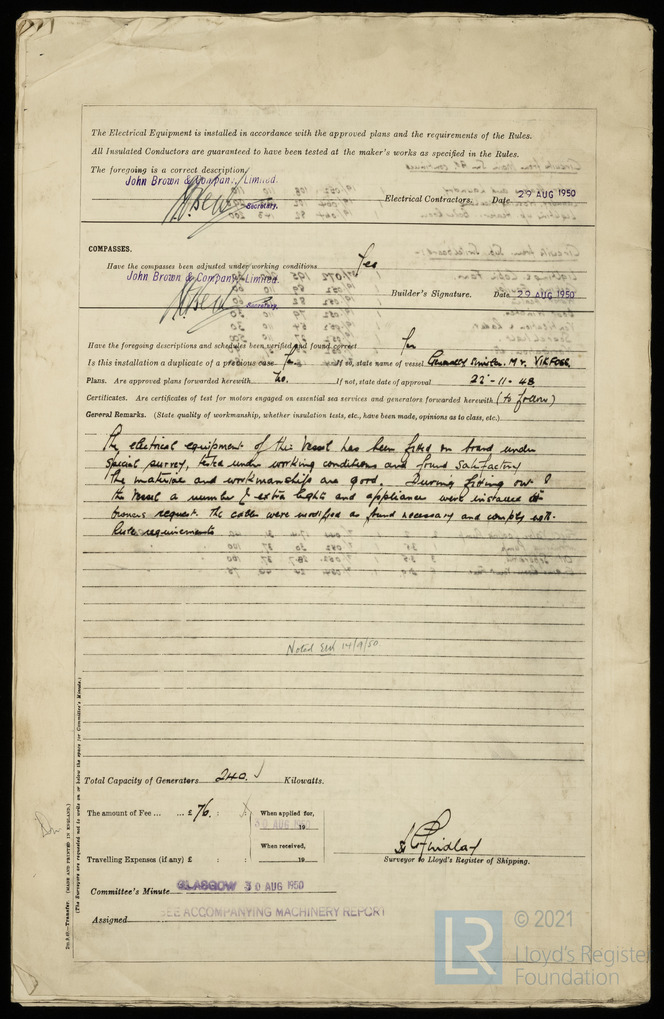 The Electrical Equipment is installed in accordance with the approved plans and the requirements of the Rules.
All Insulated Conductors are guaranteed to have been tested at the maker's works as specified in the Rules.
The foregoing is a correct description,
John Brown & Company, Limited.
Secretary. Electrical Contractors. Date 29 AUG 1950
COMPASSES.
Have the compasses been adjusted under working conditions Yes
John Brown & Company, Limited.
Secretary. Builder's Signature. Date 29 AUG 1950
Have the foregoing descriptions and schedules been verified and found correct Yes
Is this installation a duplicate of a previous case Yes If so, state name of vessel Generally Similar M.V. VIKFOSS
Plans. Are approved plans forwarded herewith No. If not, state date of approval 22-11-48
Certificates. Are certificates of test for motors engaged on essential sea services and generators forwarded herewith (to follow)
General Remarks. (State quality of workmanship, whether insulation tests, etc., have been made, opinions as to class, etc.)
The electrical equipment of this Vessel has been fitted on board under
Special survey, tested under working conditions and found satisfactory
The material and workmanship are good. During fitting out of
the Vessel a number of extra lights and appliances were installed at
owners request. The cables were modified as found necessary and comply with
Rule requirements
Noted 14/9/50.
Total Capacity of Generators 240. Kilowatts.
The amount of Fee ... ... £ 76. : : When applied for,
30 AUG 1950 19
When received,
Travelling Expenses (if any) £ : : 19
Findlay
Surveyor to Lloyd's Register of Shipping.
Committee's Minute GLASGOW 30 AUG 1950
Assigned SEE ACCOMPANYING MACHINERY REPORT
Transfer. (MADE AND PRINTED IN ENGLAND.)
(The Surveyors are requested not to write on or below the space for Committee's Minute.)
LR
© 2021
Lloyd's Register
Foundation